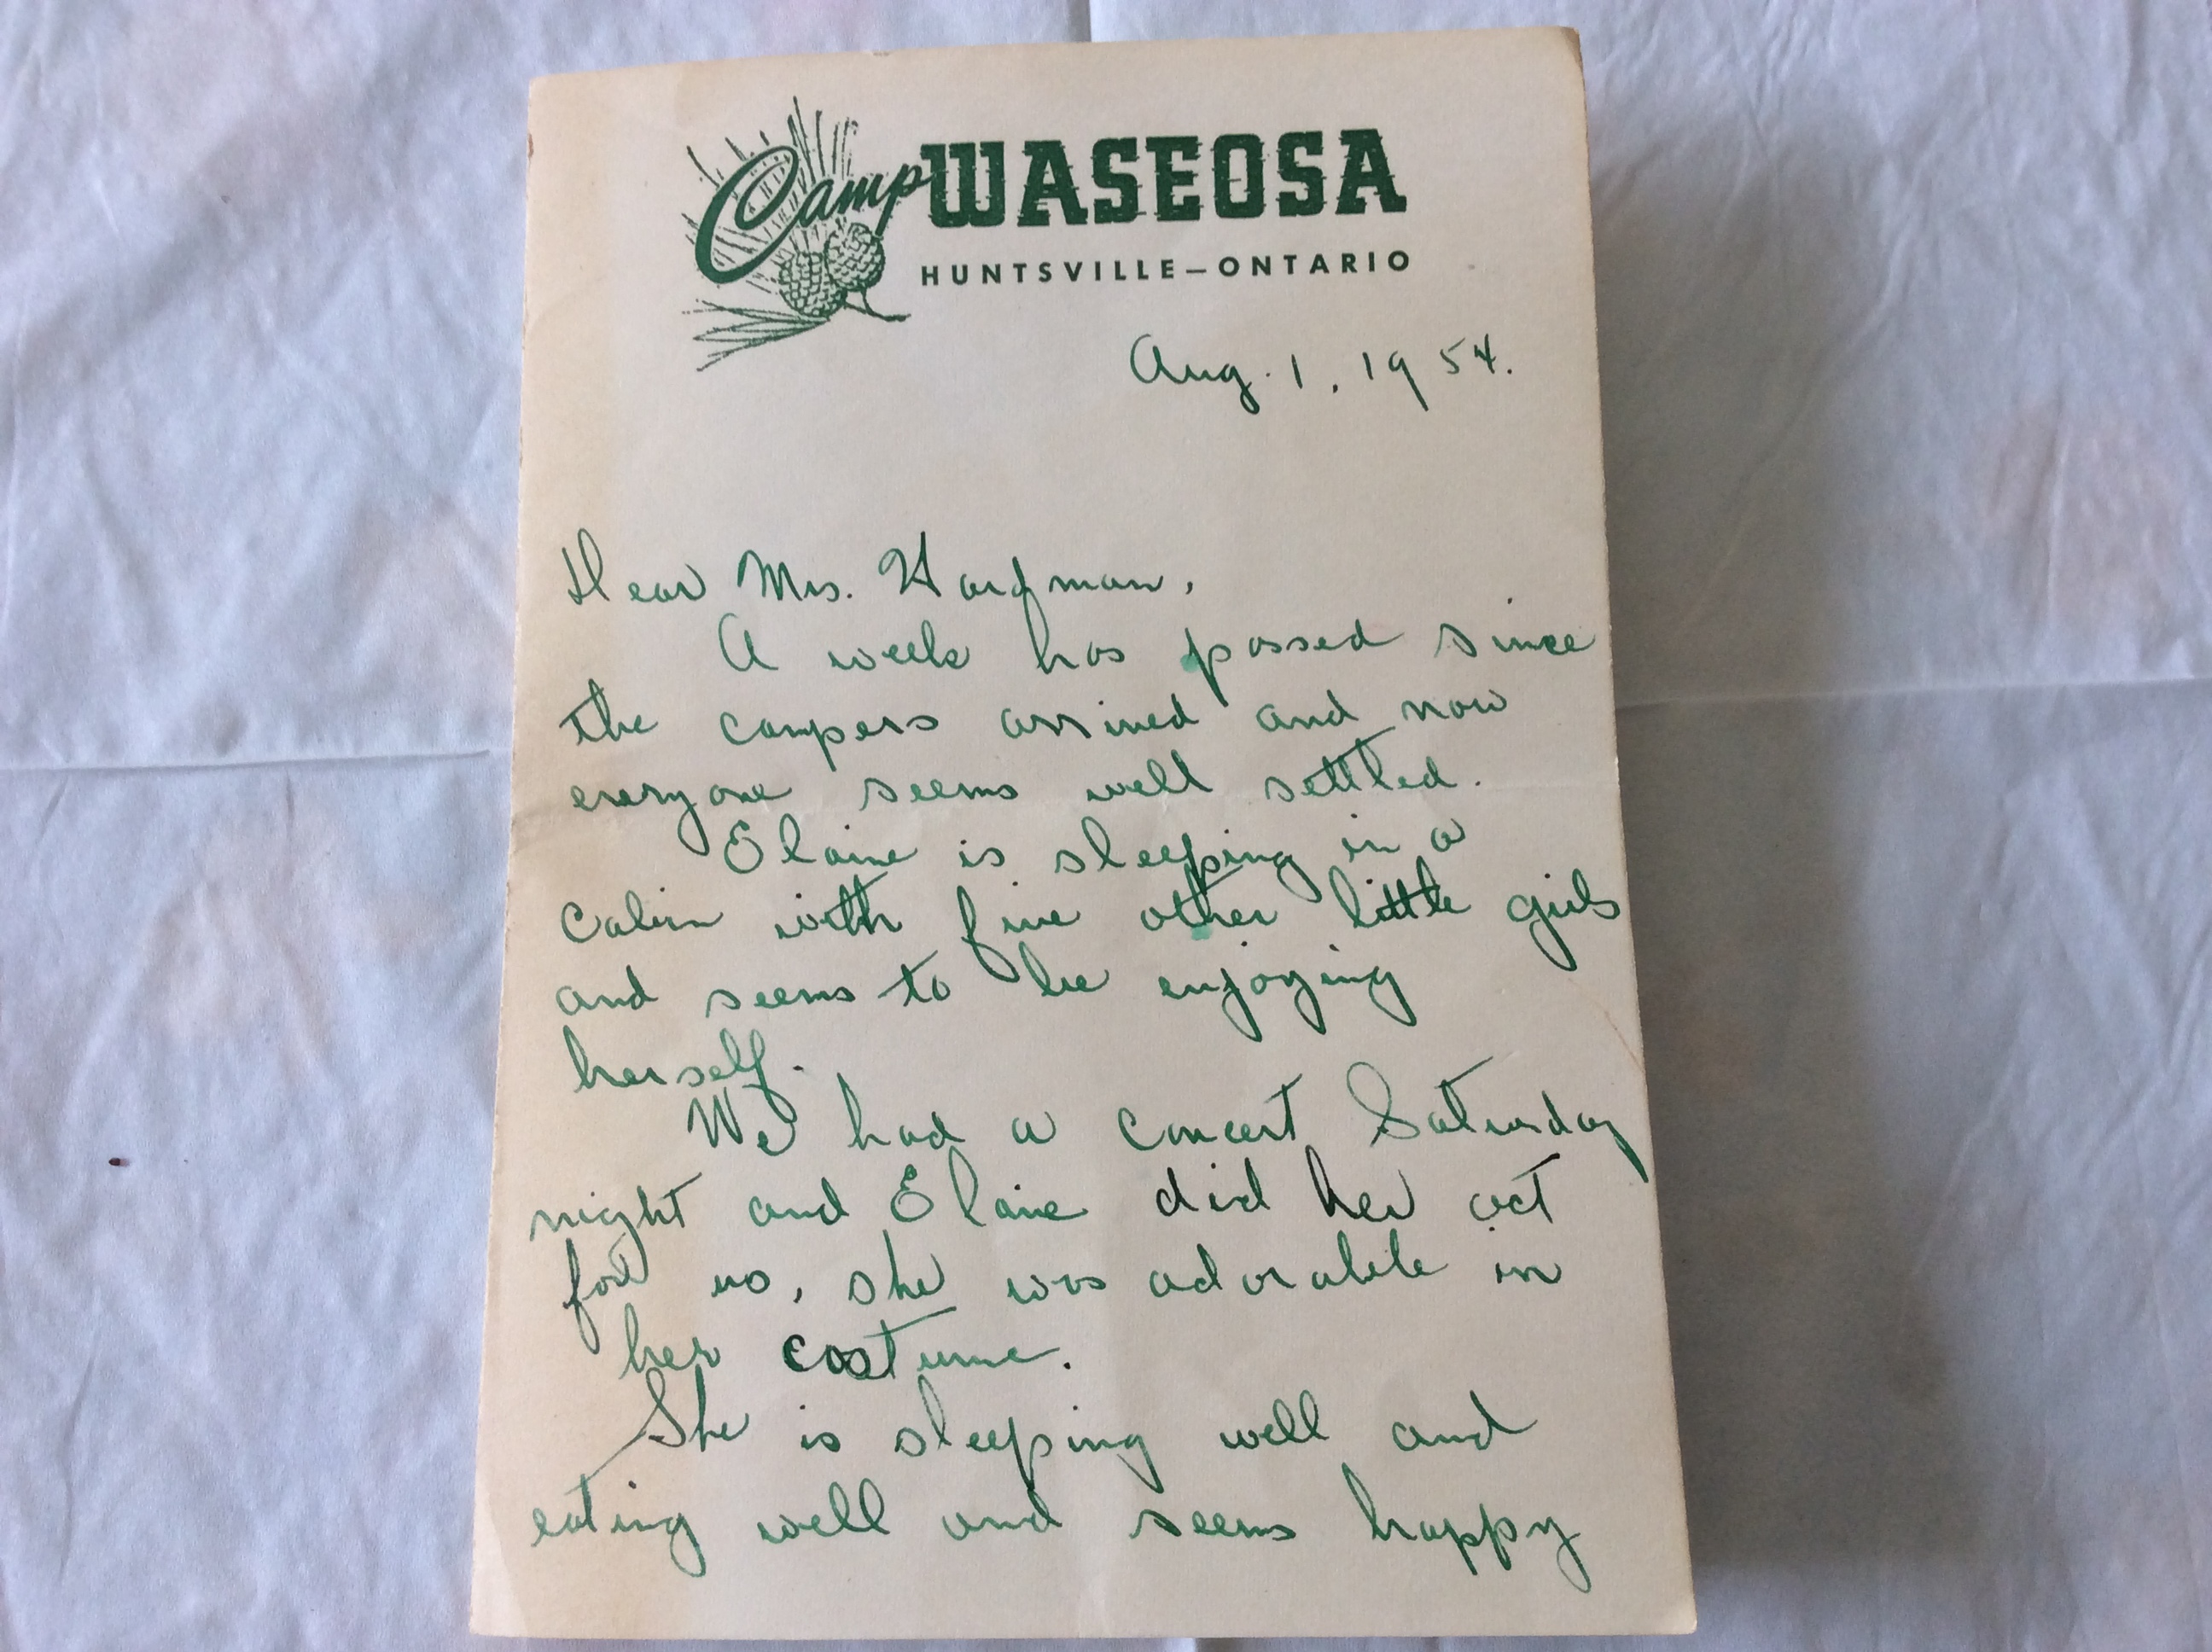 Camp WASEOSA
HUNTSVILLE—ONTARIO
Aug. 1, 1954.
Dear Mrs.
A week has passed since
the campers arrived and now
everyone seems well settled.
Elaine is sleeping in a
cabin with five other little girls
and seems to be enjoying
herself.
We had a concert Saturday
night and Elaine did her act
for us, she was adorable in
her costume.
She is sleeping well and
eating well and seems happy